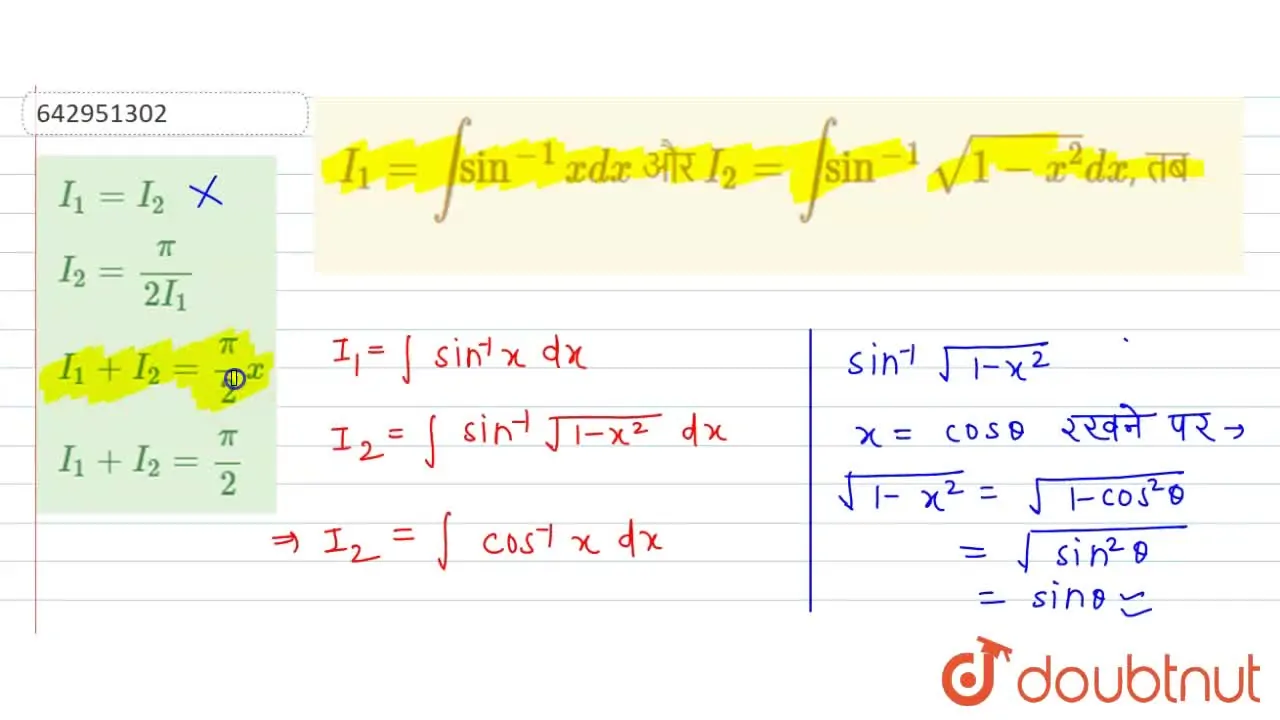 642951302
I₁ = ∫sin⁻¹ xdx और I₂ = ∫sin⁻¹ √(1 − x²)dx, तब
I₁ = I₂ ×
I₂ = π/(2I₁)
I₁ + I₂ = (π/2)x
I₁ + I₂ = π/2
I₁ = ∫ sin⁻¹ x dx
I₂ = ∫ sin⁻¹ √(1-x²) dx
⇒ I₂ = ∫ cos⁻¹ x dx
sin⁻¹ √(1-x²)
x = cosθ रखने पर →
√(1- x²) = √(1-cos²θ)
= √(sin²θ)
= sinθ
doubtnut